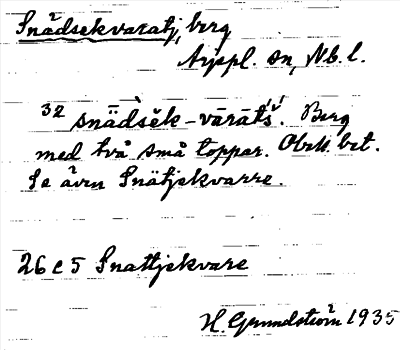 Snådsekvaratj, berg
Arjepl. sn, Nb. l.
32 snädsĕk-vārāt́ś. Berg
med två små toppar. Obek. bet.
Se även Snätjekvarre.
26 c 5 Snattjekvare
H. Grundström 1935